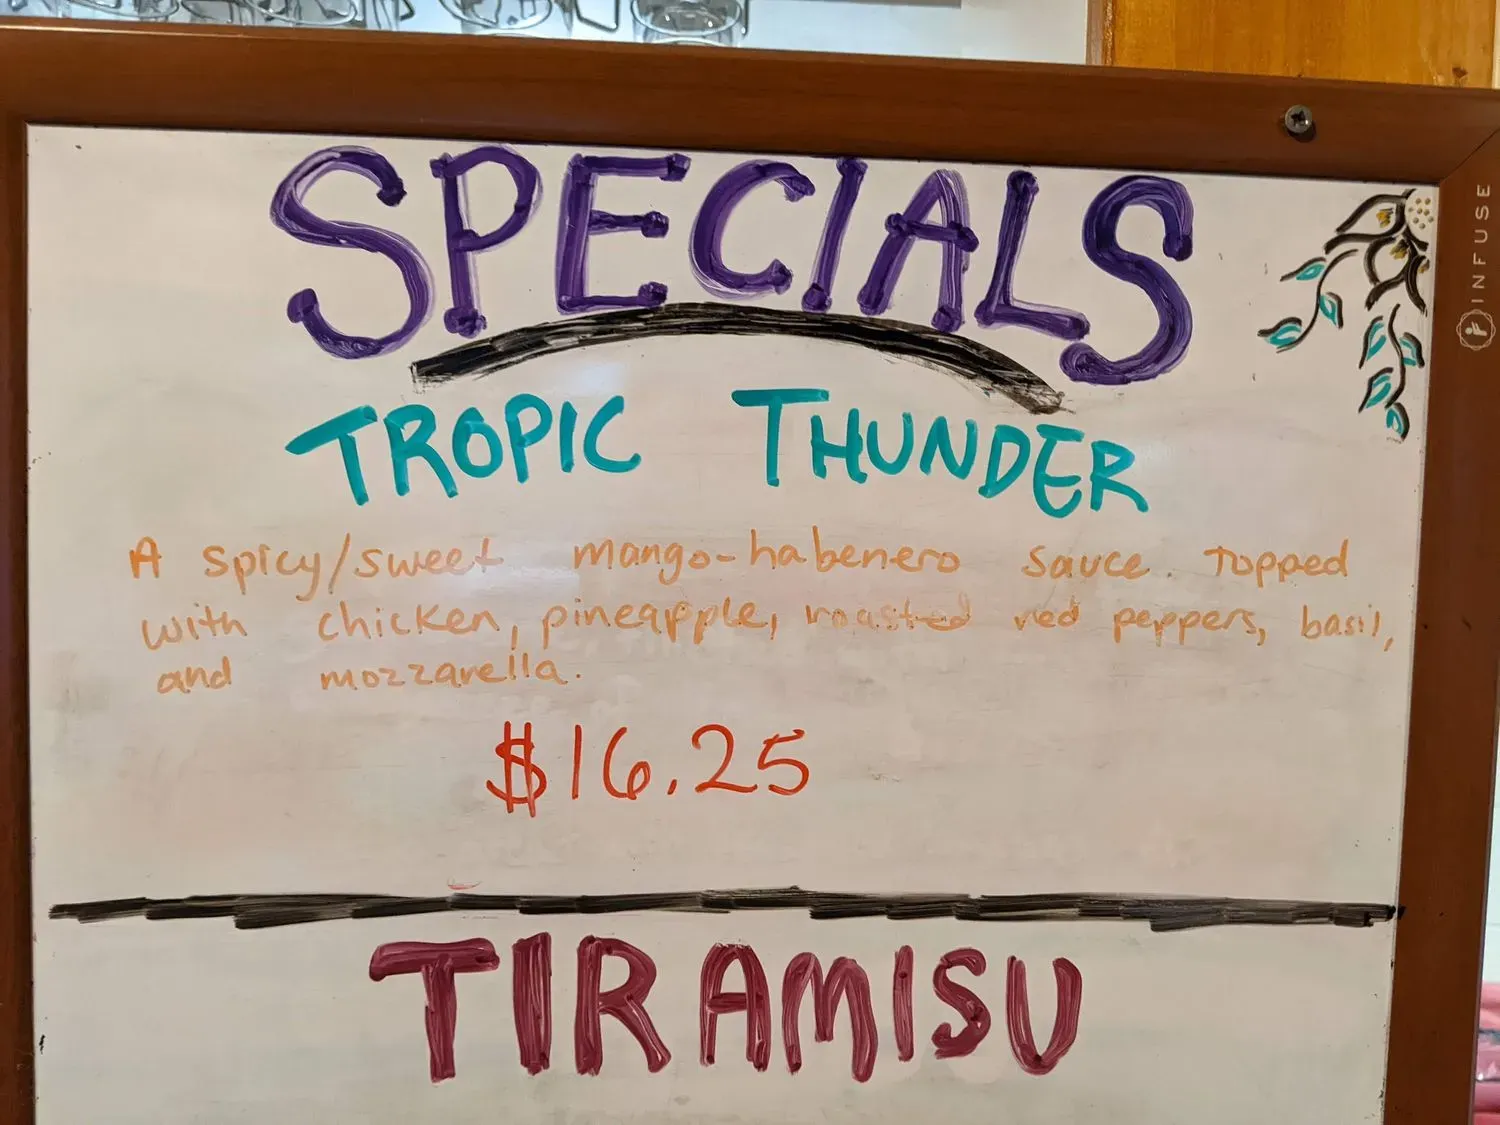 SPECIALS
TROPIC THUNDER
A spicy/sweet mango-habenero sauce. Topped
with chicken, pineapple, roasted red peppers, basil,
and mozzarella.
$16.25
TIRAMISU
INFUSE